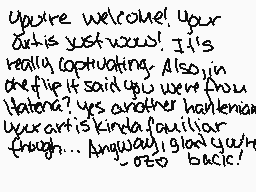 you're welcome! your
art is just wow! It's
really captivating. Also, in
one flip it said you were from
Hatena? yes another hatenian
your art is kinda familiar
though... Anyway, glad you're
-OZO back!